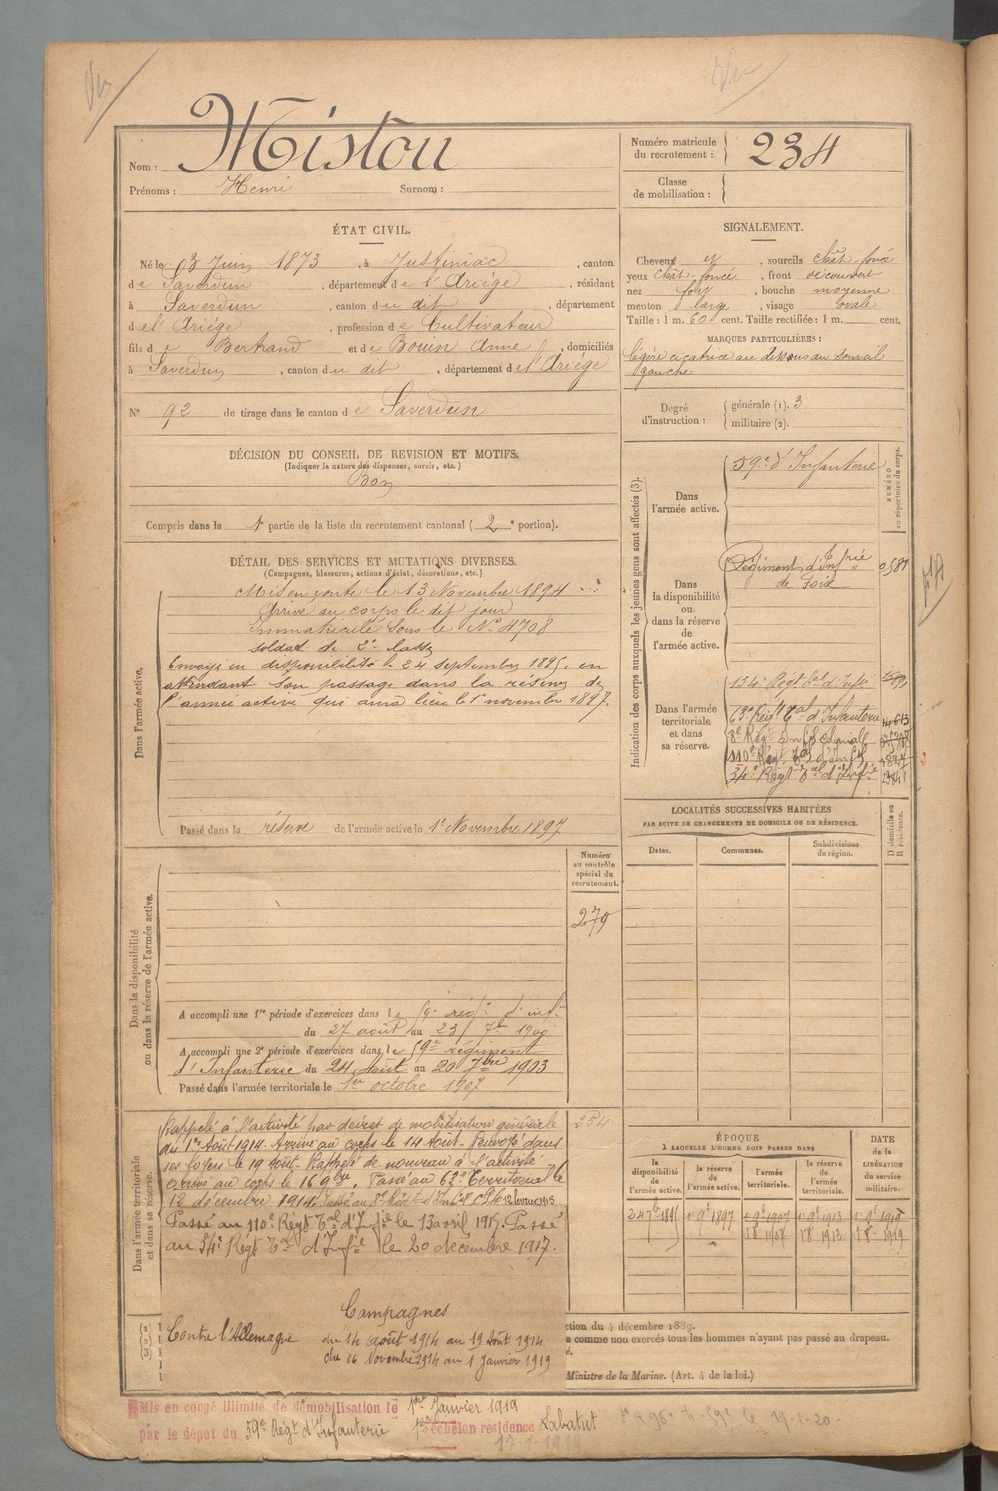 Vu
Vu
Nom : Miston
Prénoms : Henri Surnom :
Numéro matricule du recrutement : 234
Classe de mobilisation :
ÉTAT CIVIL.
Né le 03 Juin 1873, à Justiniac, canton
de Saverdun, département de l'Ariège, résidant
à Saverdun, canton du dit, département
de l'Ariège, profession de Cultivateur
fils de Bertrand et de Bouin Anne, domiciliés
à Saverdun, canton du dit, département de l'Ariège
N° 92 de tirage dans le canton de Saverdun
SIGNALEMENT.
Cheveux et, sourcils chât. foncé
yeux chât. foncé, front découvert
nez fort, bouche moyenne
menton large, visage ovale
Taille : 1 m. 60 cent. Taille rectifiée : 1 m. cent.
MARQUES PARTICULIÈRES :
légère cicatrice au dessous du sourcil
gauche
Degré d'instruction : générale (1). 3
militaire (2).
DÉCISION DU CONSEIL DE REVISION ET MOTIFS.
(Indiquer la nature des dispenses, sursis, etc.)
Bon
Compris dans la 1e partie de la liste du recrutement cantonal (2e portion).
DÉTAIL DES SERVICES ET MUTATIONS DIVERSES.
(Campagnes, blessures, actions d'éclat, décorations, etc.)
Dans l'armée active.
Mis en route le 13 Novembre 1894
Arrivé au corps le dit jour
Immatriculé sous le N° 4708
soldat de 2e classe
Envoyé en disponibilité le 24 septembre 1895, en
attendant son passage dans la réserve de
l'armée active qui aura lieu le 1er novembre 1897.
Passé dans la réserve de l'armée active le 1er Novembre 1897
Indication des corps auxquels les jeunes gens sont affectés (3).
NUMÉRO au répertoire du corps.
Dans l'armée active.
59e d'Infanterie
Dans la disponibilité ou dans la réserve de l'armée active.
Régiment d'Inf.
de Foix
Dans l'armée territoriale et dans sa réserve.
134e Régt tal d'Infie
63e Régt Tal d'Infanterie
110e Régt Tal d'Infie
34e Régt Tal d'Infie
LOCALITÉS SUCCESSIVES HABITÉES
PAR SUITE DE CHANGEMENTS DE DOMICILE OU DE RÉSIDENCE.
Dates. Communes. Subdivisions de région. D domicile ou R résidence.
Numéro au contrôle spécial du recrutement.
279
Dans la disponibilité ou dans la réserve de l'armée active.
A accompli une 1re période d'exercices dans le 59e régt d'infie
du 27 août au 23 7bre 1900
A accompli une 2e période d'exercices dans le 59e régiment
d'Infanterie du 24 Août au 20 7bre 1903
Passé dans l'armée territoriale le 1er octobre 1907
Dans l'armée territoriale et dans sa réserve.
Rappelé à l'activité par décret de mobilisation générale
du 1er Août 1914. Arrivé au corps le 14 Août. Renvoyé dans
ses foyers le 19 Août. Rappelé de nouveau à l'activité
arrivé au corps le 16 9bre. Passé au 63e Territorial le
12 décembre 1914.
Passé au 110e Régt Tal d'Infie le 13 avril 1915. Passé
au 34e Régt Tal d'Infie le 20 décembre 1917.
Campagnes
Contre l'Allemagne du 14 août 1914 au 19 Août 1914
du 16 Novembre 1914 au 1 Janvier 1919
234
ÉPOQUE
À LAQUELLE L'HOMME DOIT PASSER DANS
DATE de la LIBÉRATION du service militaire.
la disponibilité de l'armée active. la réserve de l'armée active. l'armée territoriale. la réserve de l'armée territoriale.
1897 1907 1913 1919
(1)
(2)
(3)
ction du 4 décembre 1889.
a comme non exercés tous les hommes n'ayant pas passé au drapeau.
é.
Ministre de la Marine. (Art. 4 de la loi.)
Mis en congé illimité de démobilisation le 1er Janvier 1919
par le dépot du 59e Régt d'Infanterie 1er échelon residence Labatut